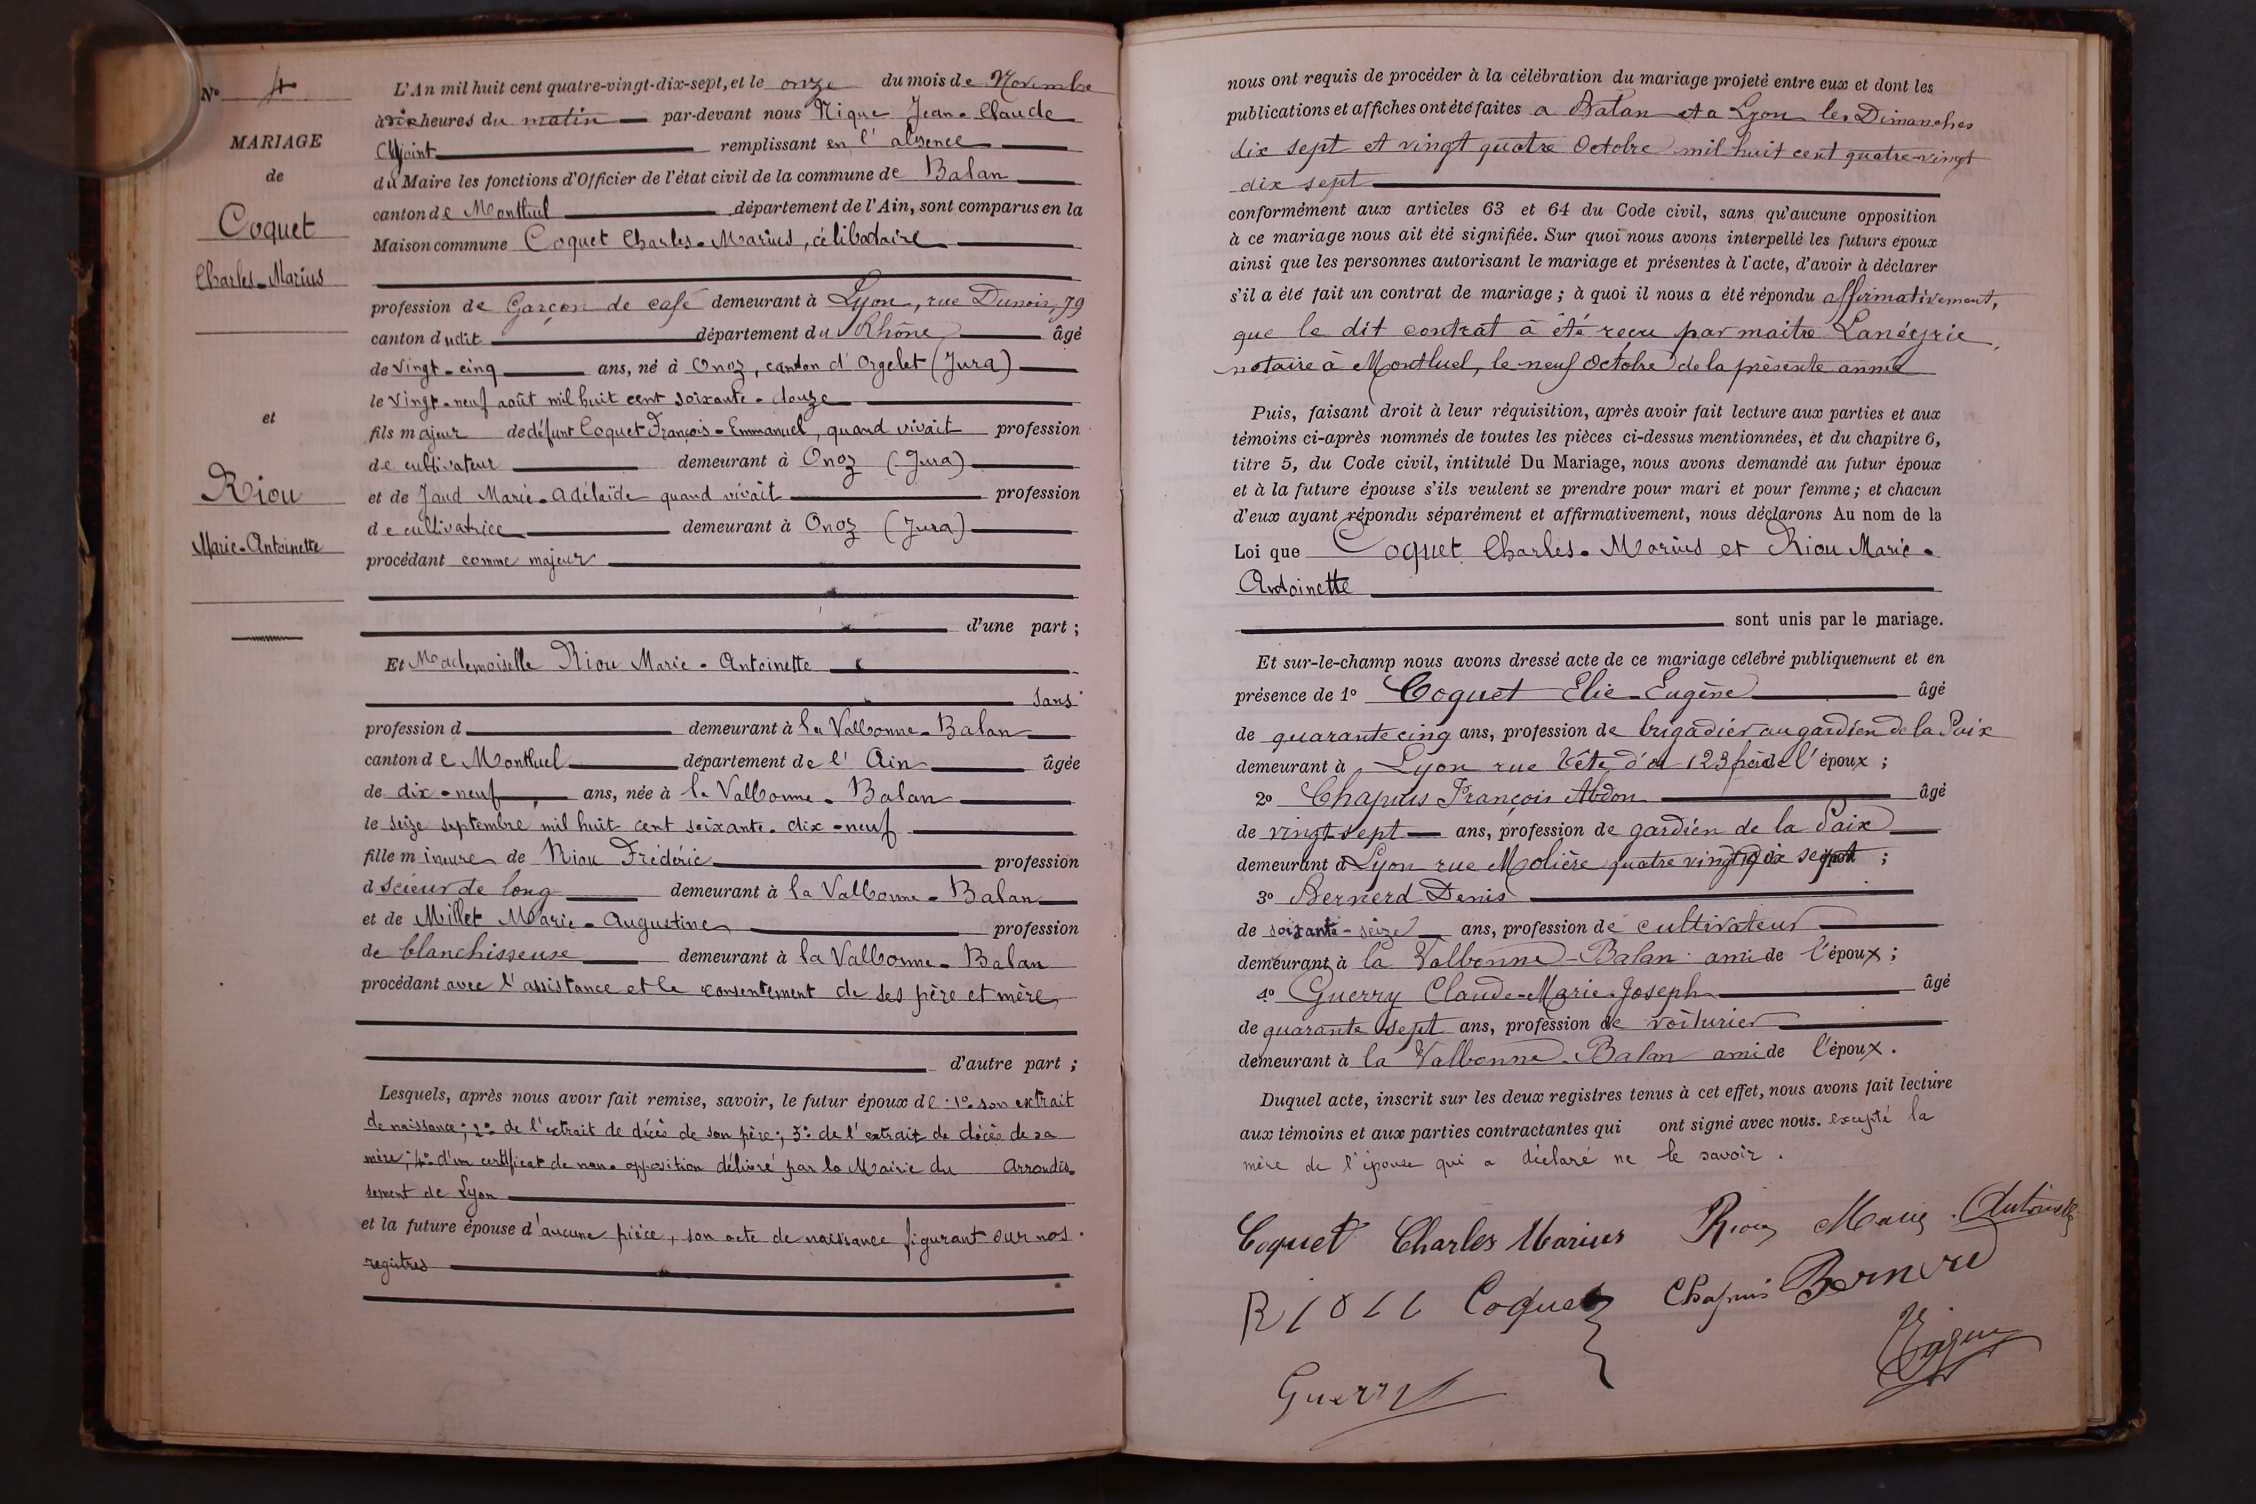 N° 4
MARIAGE
de
Coquet
Charles-Marius
et
Riou
Marie-Antoinette
L'An mil huit cent quatre-vingt-dix-sept, et le onze du mois de Novembre
à dix heures du matin par-devant nous Nique Jean-Claude
Adjoint remplissant en l'absence
du Maire les fonctions d'Officier de l'état civil de la commune de Balan
canton de Montluel département de l'Ain, sont comparus en la
Maison commune Coquet Charles-Marius, célibataire
profession de Garçon de café demeurant à Lyon, rue Dunoir, 79
canton dudit département du Rhône âgé
de vingt-cinq ans, né à Onoz, canton d'Orgelet (Jura)
le vingt-neuf août mil huit cent soixante-douze
fils majeur de défunt Coquet François-Emmanuel, quand vivait profession
de cultivateur demeurant à Onoz (Jura)
et de Jaud Marie-Adélaïde quand vivait profession
de cultivatrice demeurant à Onoz (Jura)
procédant comme majeur
d'une part ;
Et Mademoiselle Riou Marie-Antoinette
sans
profession d demeurant à la Valbonne-Balan
canton de Montluel département de l'Ain âgée
de dix-neuf ans, née à la Valbonne-Balan
le seize septembre mil huit cent soixante-dix-neuf
fille mineure de Riou Frédéric profession
d scieur de long demeurant à la Valbonne-Balan
et de Millet Marie-Augustine profession
de blanchisseuse demeurant à la Valbonne-Balan
procédant avec l'assistance et le consentement de ses père et mère
d'autre part ;
Lesquels, après nous avoir fait remise, savoir, le futur époux de : 1° son extrait
de naissance ; 2° de l'extrait de décès de son père ; 3° de l'extrait de décès de sa
mère ; 4° d'un certificat de non-opposition délivré par la Mairie du Arrondis-
sement de Lyon
et la future épouse d'aucune pièce, son acte de naissance figurant sur nos
registres
nous ont requis de procéder à la célébration du mariage projeté entre eux et dont les
publications et affiches ont été faites a Balan et a Lyon les Dimanches
dix sept et vingt quatre Octobre mil huit cent quatre-vingt
dix sept
conformément aux articles 63 et 64 du Code civil, sans qu'aucune opposition
à ce mariage nous ait été signifiée. Sur quoi nous avons interpellé les futurs époux
ainsi que les personnes autorisant le mariage et présentes à l'acte, d'avoir à déclarer
s'il a été fait un contrat de mariage ; à quoi il nous a été répondu affirmativement,
que le dit contrat à été reçu par maitre Lanéyrie,
notaire à Montluel, le neuf Octobre de la présente année
Puis, faisant droit à leur réquisition, après avoir fait lecture aux parties et aux
témoins ci-après nommés de toutes les pièces ci-dessus mentionnées, et du chapitre 6,
titre 5, du Code civil, intitulé Du Mariage, nous avons demandé au futur époux
et à la future épouse s'ils veulent se prendre pour mari et pour femme ; et chacun
d'eux ayant répondu séparément et affirmativement, nous déclarons Au nom de la
Loi que Coquet Charles-Marius et Riou Marie-
Antoinette
sont unis par le mariage.
Et sur-le-champ nous avons dressé acte de ce mariage célébré publiquement et en
présence de 1° Coquet Elie-Eugène âgé
de quarante cinq ans, profession de brigadier au gardien de la Paix
demeurant à Lyon rue Tête d'or 123 frère de l'époux ;
2° Chapuis François Abdon âgé
de vingt sept ans, profession de gardien de la Paix
demeurant à Lyon rue Molière quatre vingt dix sept ;
3° Bernerd Denis
de soixante-seize ans, profession de cultivateur
demeurant à la Valbonne-Balan ami de l'époux ;
4° Guerry Claude-Marie-Joseph âgé
de quarante sept ans, profession de voiturier
demeurant à la Valbonne-Balan ami de l'époux.
Duquel acte, inscrit sur les deux registres tenus à cet effet, nous avons fait lecture
aux témoins et aux parties contractantes qui ont signé avec nous. excepté la
mère de l'épouse qui a déclaré ne le savoir.
Coquet Charles Marius Riou Marie-Antoinette
Riou Coquet Chapuis Bernerd
Nique
Guerry